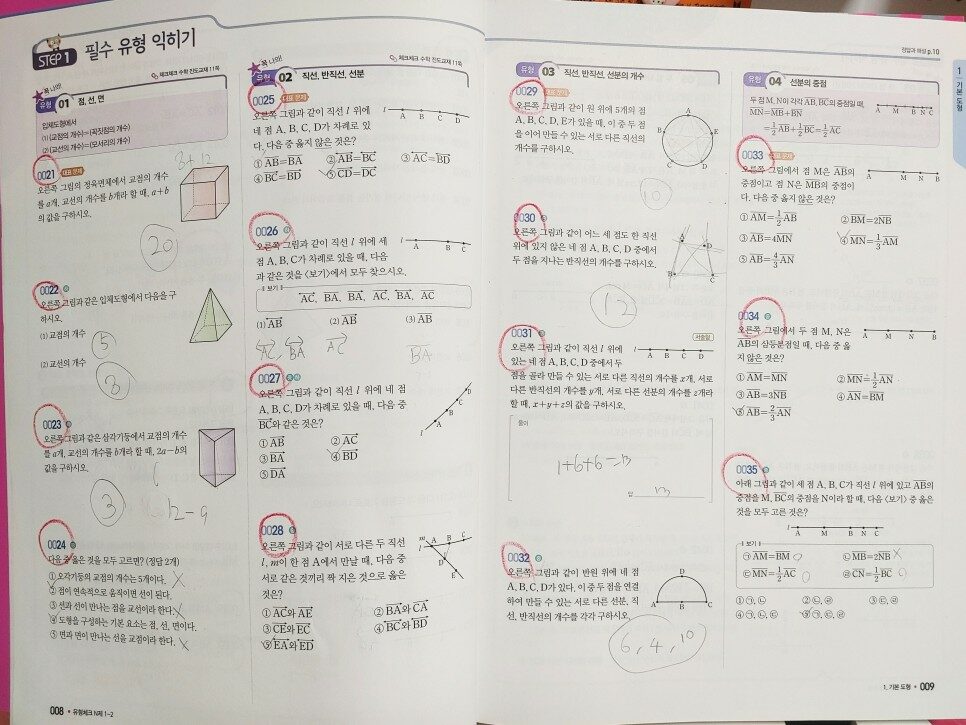 STEP 1 필수 유형 익히기
꼭 나와!
체크체크 수학 진도교재 11쪽
유형 01 점, 선, 면
입체도형에서
(1) (교점의 개수)=(꼭짓점의 개수)
(2) (교선의 개수)=(모서리의 개수)
0021 대표 문제
8+12
오른쪽 그림의 정육면체에서 교점의 개수
를 a개, 교선의 개수를 b개라 할 때, a+b
의 값을 구하시오.
20
0022
오른쪽 그림과 같은 입체도형에서 다음을 구
하시오.
(1) 교점의 개수
5
(2) 교선의 개수
8
0023
오른쪽 그림과 같은 삼각기둥에서 교점의 개수
를 a개, 교선의 개수를 b개라 할 때, 2a-b의
값을 구하시오.
6
3
12-9
0024
다음 중 옳은 것을 모두 고르면? (정답 2개)
① 오각기둥의 교점의 개수는 5개이다.
② 점이 연속적으로 움직이면 선이 된다.
③ 선과 선이 만나는 점을 교선이라 한다.
④ 도형을 구성하는 기본 요소는 점, 선, 면이다.
⑤ 면과 면이 만나는 선을 교점이라 한다.
008 • 유형체크 N제 1-2
꼭 나와!
체크체크 수학 진도교재 11쪽
유형 02 직선, 반직선, 선분
0025 대표 문제
오른쪽 그림과 같이 직선 l 위에
네 점 A, B, C, D가 차례로 있
다. 다음 중 옳지 않은 것은?
l A B C D
① AB=BA ② AB=BC ③ AC=BD
④ BC=BD ⑤ CD=DC
0026
오른쪽 그림과 같이 직선 l 위에 세
점 A, B, C가 차례로 있을 때, 다음
과 같은 것을 <보기>에서 모두 찾으시오.
l A B C
보기
AC, BA, BA, AC, BA, AC
(1) AB (2) AB (3) AB
AC, BA AC BA
0027
오른쪽 그림과 같이 직선 l 위에 네 점
A, B, C, D가 차례로 있을 때, 다음 중
BC와 같은 것은?
l A B C D
① AB ② AC
③ BA ④ BD
⑤ DA
0028
오른쪽 그림과 같이 서로 다른 두 직선
l, m이 한 점 A에서 만날 때, 다음 중
서로 같은 것끼리 짝 지은 것으로 옳은
것은?
m A B C
l D E
① AC와 AE ② BA와 CA
③ CE와 EC ④ BC와 BD
⑤ EA와 ED
정답과 해설 p.10
1 기본 도형
유형 03 직선, 반직선, 선분의 개수
0029 대표 문제
오른쪽 그림과 같이 원 위에 5개의 점
A, B, C, D, E가 있을 때, 이 중 두 점
을 이어 만들 수 있는 서로 다른 직선의
개수를 구하시오.
A B C D E
10
0030
오른쪽 그림과 같이 어느 세 점도 한 직선
위에 있지 않은 네 점 A, B, C, D 중에서
두 점을 지나는 반직선의 개수를 구하시오.
A D B C
12
0031 서술형
오른쪽 그림과 같이 직선 l 위에
있는 네 점 A, B, C, D 중에서 두
점을 골라 만들 수 있는 서로 다른 직선의 개수를 x개, 서로
다른 반직선의 개수를 y개, 서로 다른 선분의 개수를 z개라
할 때, x+y+z의 값을 구하시오.
l A B C D
풀이
1+6+6=13
답 13
0032
오른쪽 그림과 같이 반원 위에 네 점
A, B, C, D가 있다. 이 중 두 점을 연결
하여 만들 수 있는 서로 다른 선분, 직
선, 반직선의 개수를 각각 구하시오.
A B C D
6, 4, 10
유형 04 선분의 중점
두 점 M, N이 각각 AB, BC의 중점일 때,
MN=MB+BN
=1/2AB+1/2BC=1/2AC
A M B N C
0033 대표 문제
오른쪽 그림에서 점 M은 AB의
중점이고 점 N은 MB의 중점이
다. 다음 중 옳지 않은 것은?
A M N B
① AM=1/2AB ② BM=2NB
③ AB=4MN ④ MN=1/3AM
⑤ AB=4/3AN
0034
오른쪽 그림에서 두 점 M, N은
AB의 삼등분점일 때, 다음 중 옳
지 않은 것은?
A M N B
① AM=MN ② MN=1/2AN
③ AB=3NB ④ AN=BM
⑤ AB=2/3AN
0035
아래 그림과 같이 세 점 A, B, C가 직선 l 위에 있고 AB의
중점을 M, BC의 중점을 N이라 할 때, 다음 <보기> 중 옳은
것을 모두 고른 것은?
l A M B N C
보기
㉠ AM=BM ㉡ MB=2NB
㉢ MN=1/2AC ㉣ CN=1/2BC
① ㉠, ㉡ ② ㉡, ㉣ ③ ㉢, ㉣
④ ㉠, ㉡, ㉢ ⑤ ㉠, ㉢, ㉣
1. 기본 도형 • 009